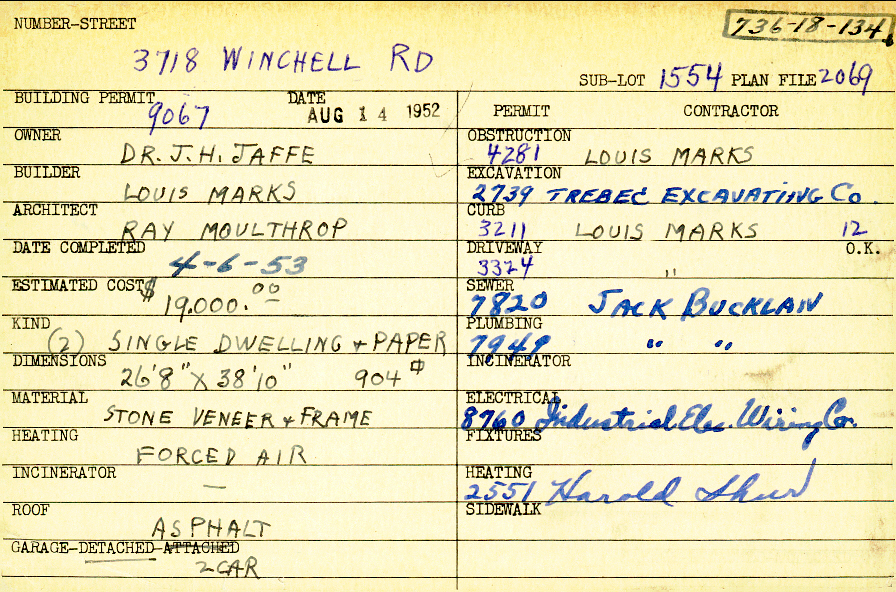 NUMBER-STREET
736-18-134
3718 WINCHELL RD
SUB-LOT 1554 PLAN FILE 2069
BUILDING PERMIT 9067 DATE AUG 14 1952
OWNER DR. J. H. JAFFE
BUILDER LOUIS MARKS
ARCHITECT RAY MOULTHROP
DATE COMPLETED 4-6-53
ESTIMATED COST $19,000.00
KIND (2) SINGLE DWELLING & PAPER
DIMENSIONS 26'8" X 38'10" 904
MATERIAL STONE VENEER & FRAME
HEATING FORCED AIR
INCINERATOR —
ROOF ASPHALT
GARAGE-DETACHED-ATTACHED 2 CAR
PERMIT CONTRACTOR
OBSTRUCTION 4281 LOUIS MARKS
EXCAVATION 2739 TREBEC EXCAVATING Co.
CURB 3211 LOUIS MARKS 12
DRIVEWAY 3324 " O.K.
SEWER 7820 JACK BUCKLAN
PLUMBING 7949 " "
INCINERATOR
ELECTRICAL 8760 Industrial Elec. Wiring Co.
FIXTURES
HEATING 2551 Harold
SIDEWALK